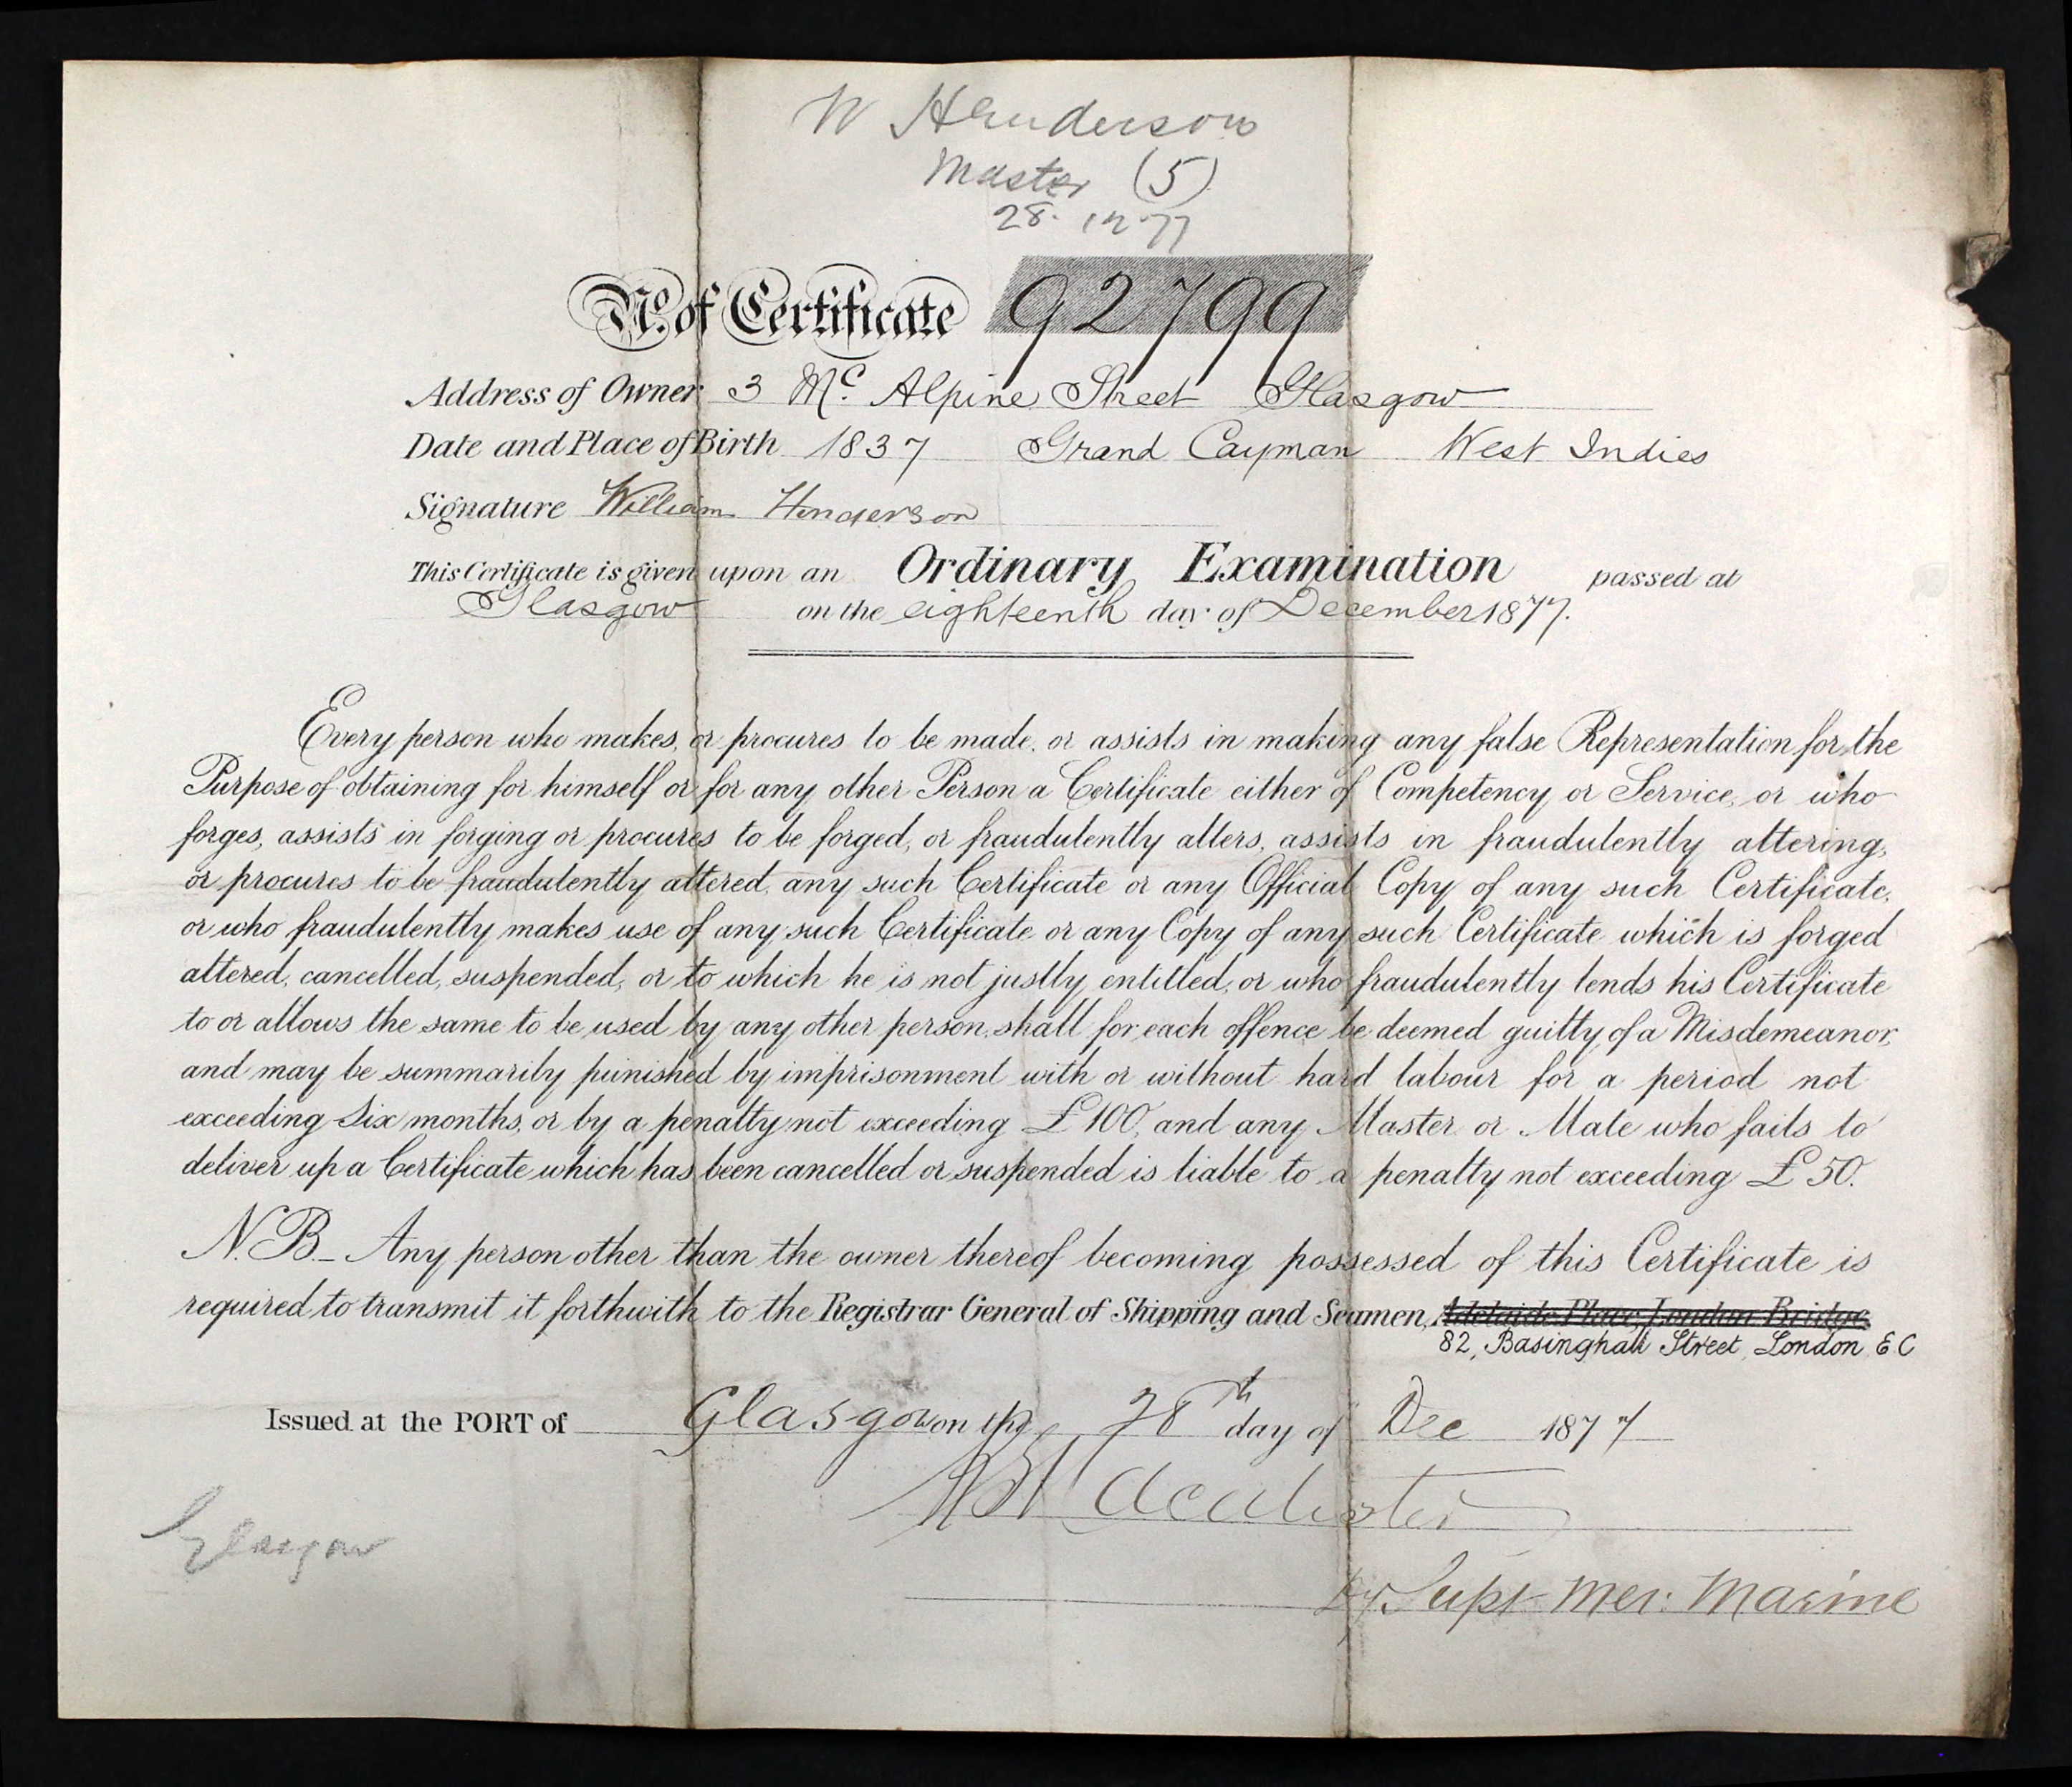 W Henderson
Master (5)
28. 12 77
No. of Certificate 92799
Address of Owner 3 Mc. Alpine Street Glasgow
Date and Place of Birth 1837 Grand Cayman West Indies
Signature William Henderson
This Certificate is given upon an Ordinary Examination passed at
Glasgow on the eighteenth day of December 1877.
Every person who makes, or procures to be made, or assists in making any false Representation for the
Purpose of obtaining for himself or for any other Person a Certificate either of Competency or Service, or who
forges, assists in forging or procures to be forged, or fraudulently alters, assists in fraudulently altering,
or procures to be fraudulently altered, any such Certificate or any Official Copy of any such Certificate,
or who fraudulently makes use of any such Certificate or any Copy of any such Certificate which is forged
altered, cancelled, suspended, or to which he is not justly entitled, or who fraudulently lends his Certificate
to or allows the same to be used by any other person, shall for each offence be deemed guilty of a Misdemeanor,
and may be summarily punished by imprisonment with or without hard labour for a period not
exceeding Six months, or by a penalty not exceeding £100, and any Master or Mate who fails to
deliver up a Certificate which has been cancelled or suspended is liable to a penalty not exceeding £50.
N.B. – Any person other than the owner thereof becoming possessed of this Certificate is
required to transmit it forthwith to the Registrar General of Shipping and Seamen, Adelaide Place, London Bridge.
82, Basinghall Street, London E C
Issued at the PORT of Glasgow on the 28th day of Dec 1877
Dy Supt Mer: Marine
Glasgow